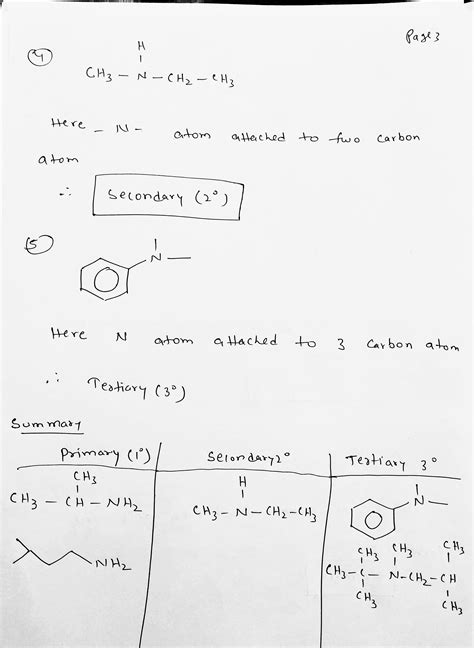 Page 3
4
H
CH3 - N - CH2 - CH3
Here - N - atom attached to two carbon
atom
∴ Secondary (2°)
5
N
Here N atom attached to 3 carbon atom
∴ Tertiary (3°)
Summary
Primary (1°) Secondary 2° Tertiary 3°
CH3
CH3 - CH - NH2
H
CH3 - N - CH2 - CH3
N
NH2
CH3 CH3 CH3
CH3 - C - N - CH2 - CH
CH3 CH3